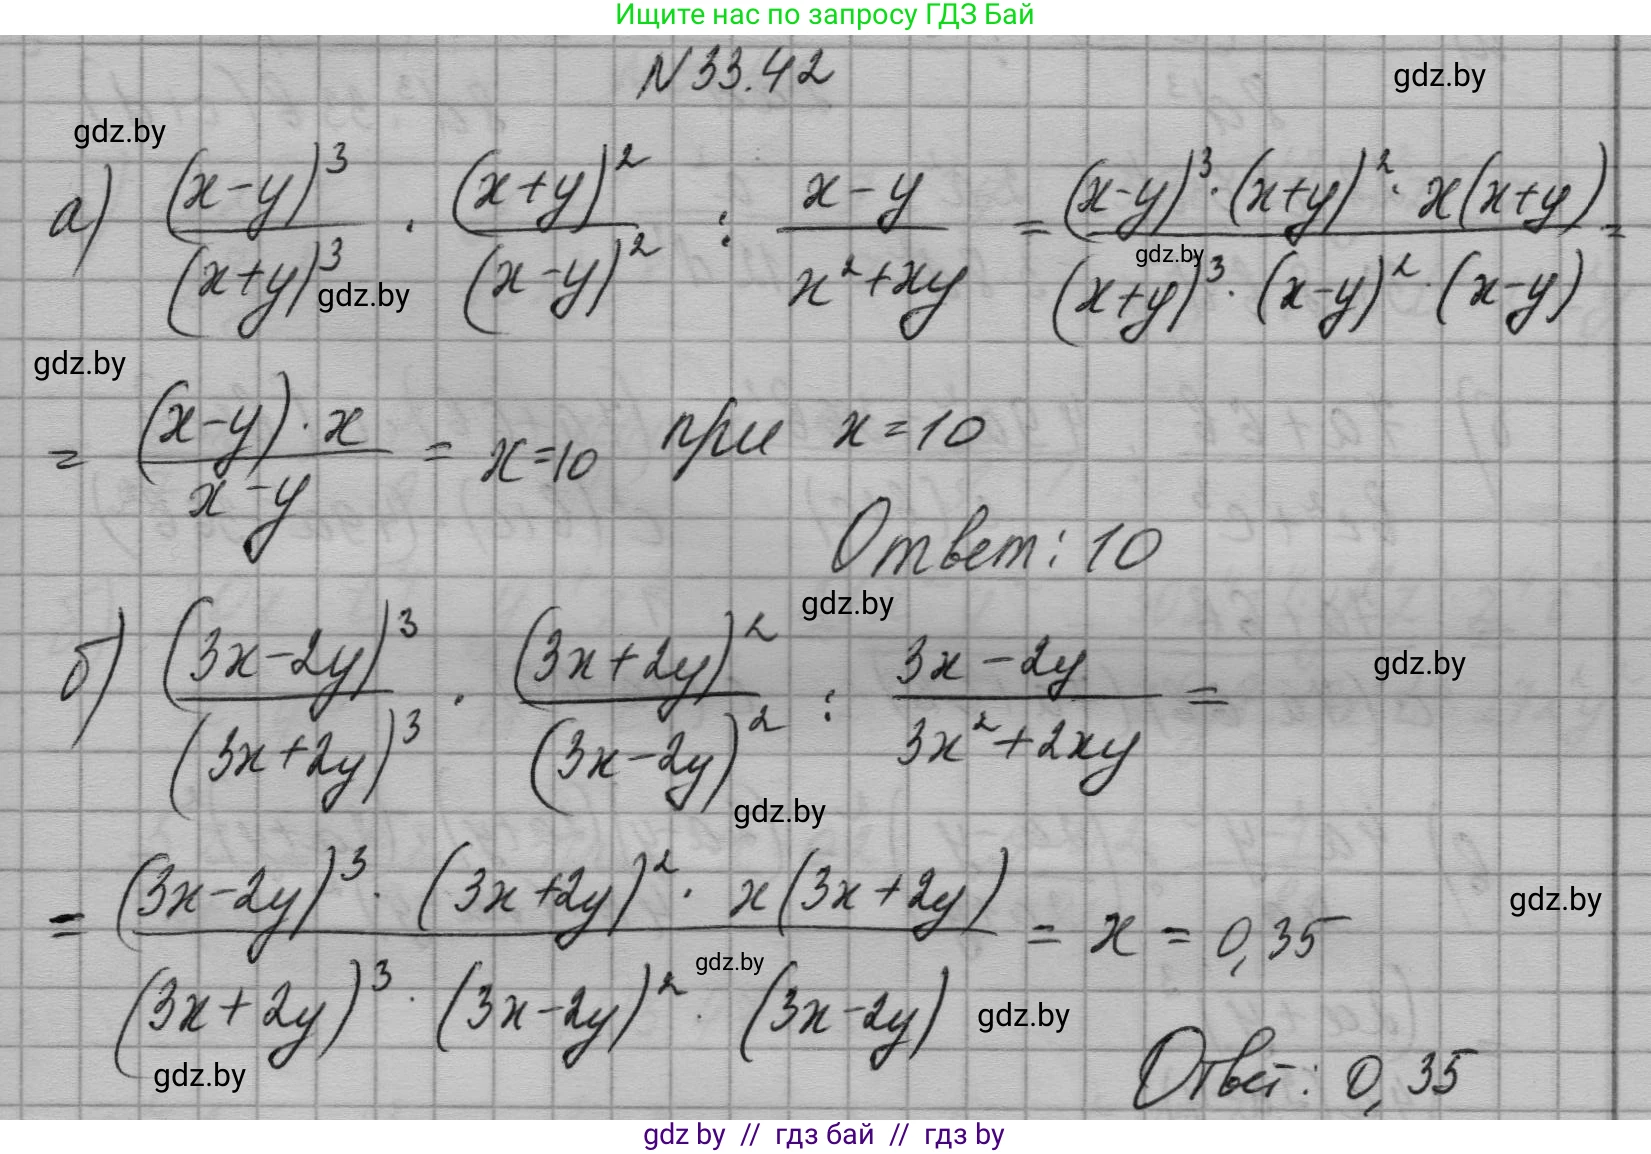 Ищите нас по запросу ГДЗ Бай
N 33.42
gdz.by
gdz.by
а) (x-y)³/(x+y)³ · (x+y)²/(x-y)² : (x-y)/(x²+xy) = ((x-y)³·(x+y)²·x(x+y))/((x+y)³·(x-y)²·(x-y)) =
gdz.by
gdz.by
gdz.by
= ((x-y)·x)/(x-y) = x=10 при x=10
Ответ: 10
gdz.by
б) (3x-2y)³/(3x+2y)³ · (3x+2y)²/(3x-2y)² : (3x-2y)/(3x²+2xy) =
gdz.by
gdz.by
= ((3x-2y)³·(3x+2y)²·x(3x+2y))/((3x+2y)³·(3x-2y)²·(3x-2y)) = x = 0,35
gdz.by
gdz.by
gdz.by
gdz.by
Ответ: 0,35
gdz by // гдз бай // гдз by